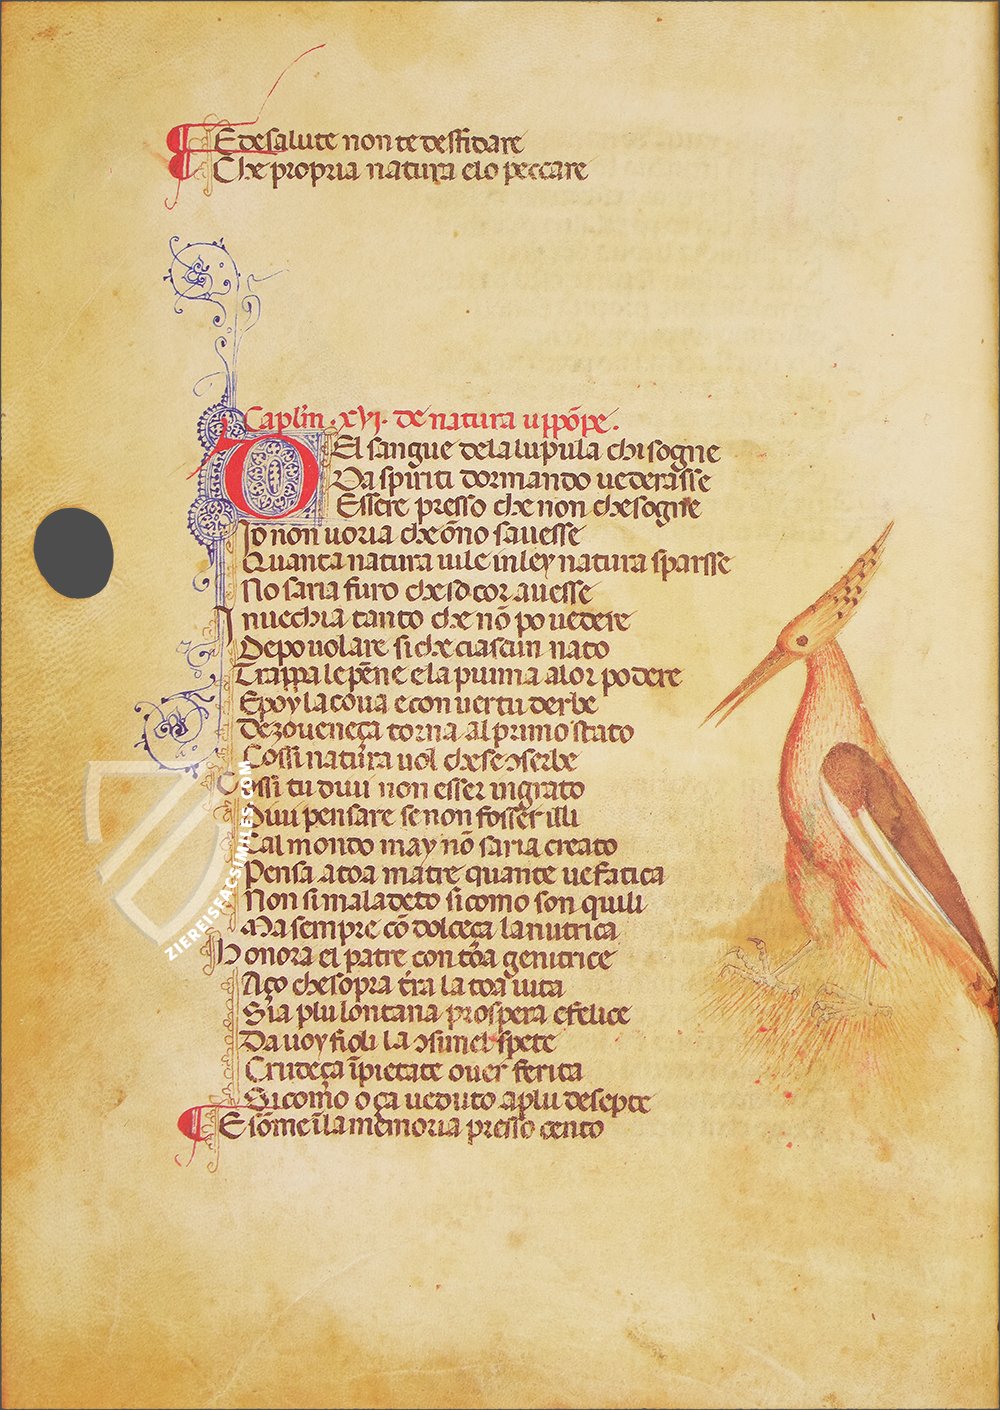 E de salute non te desfidare
Che propria natura elo peccare
Caplm .xvi. de natura uppōpe.
DEl sangue de la lupula chi sogne
Da spiriti dormando uederasse
Essere presso che non che sogne
Io non uoria che ōno sauesse
Quanta natura uile in ley natura sparsse
No saria furo che sd cor auesse
Inuechia tanto che nō po uedere
De po uolare si che ciascun nato
Trappa le pēne e la puima a lor podere
E poy la coua e con uertu derbe
De zoueneça torna al primo stato
Cossi natura uol che se ɔserbe
Cossi tu diui non esser ingrato
Diui pensare se non fosser illi
Cal mondo may nō saria creato
Pensa a toa matre quante ue fatica
Non si maladeto si como son quili
Ma sempre cō dolceça la nutrica
Honora el patre con tōa genitrice
Aço che sopra t̄ra la toa uita
Sia plu lontana prospera e felice
Da uoy fioli la ɔsimel spete
Crudeça īpietate ouer ferita
Si como o ça ueduto a plu de septe
E sōme ī la memoria presso cento
ZIEREISFACSIMILES.COM